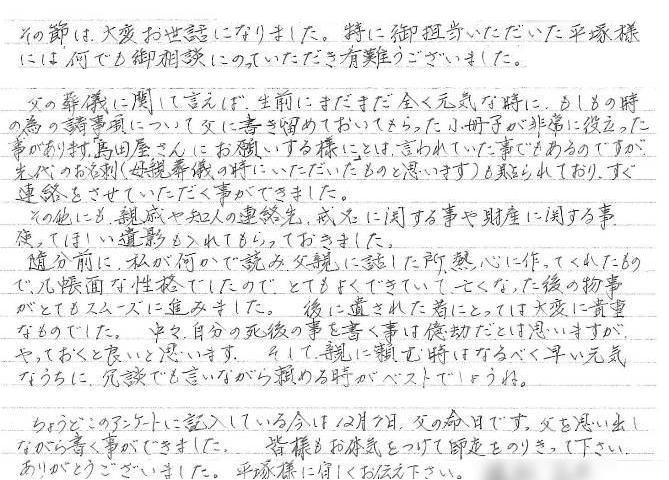 その節は、大変お世話になりました。特に御担当いただいた平塚様
には何でも御相談にのっていただき有難うございました。
父の葬儀に関して言えば、生前にまだまだ全く元気な時に、もしもの時
の為の諸事項について父に書き留めておいてもらった小冊子が非常に役立った
事があります。島田屋さんにお願いする様にとは、言われていた事でもあるのですが
先代のお名刺(母親葬儀の時にいただいたものと思います)も貼られており、すぐ
連絡をさせていただく事ができました。
その他にも、親戚や知人の連絡先、戒名に関する事や財産に関する事、
使ってほしい遺影も入れてもらっておきました。
随分前に、私が何かで読み、父親に話した所、熱心に作ってくれたもの
で、几帳面な性格でしたので、とてもよくできていて、亡くなった後の物事
がとてもスムーズに進みました。 後に遺された者にとっては大変に貴重
なものでした。 中々、自分の死後の事を書く事は億劫だとは思いますが、
やっておくと良いと思います。 そして、親に頼む時はなるべく早い元気
なうちに、冗談でも言いながら頼める時がベストでしょうね。
ちょうどこのアンケートに記入している今は12月7日、父の命日です。父を思い出し
ながら書く事ができました。 皆様もお体気をつけて師走をのりきって下さい。
ありがとうございました。平塚様に宜しくお伝え下さい。